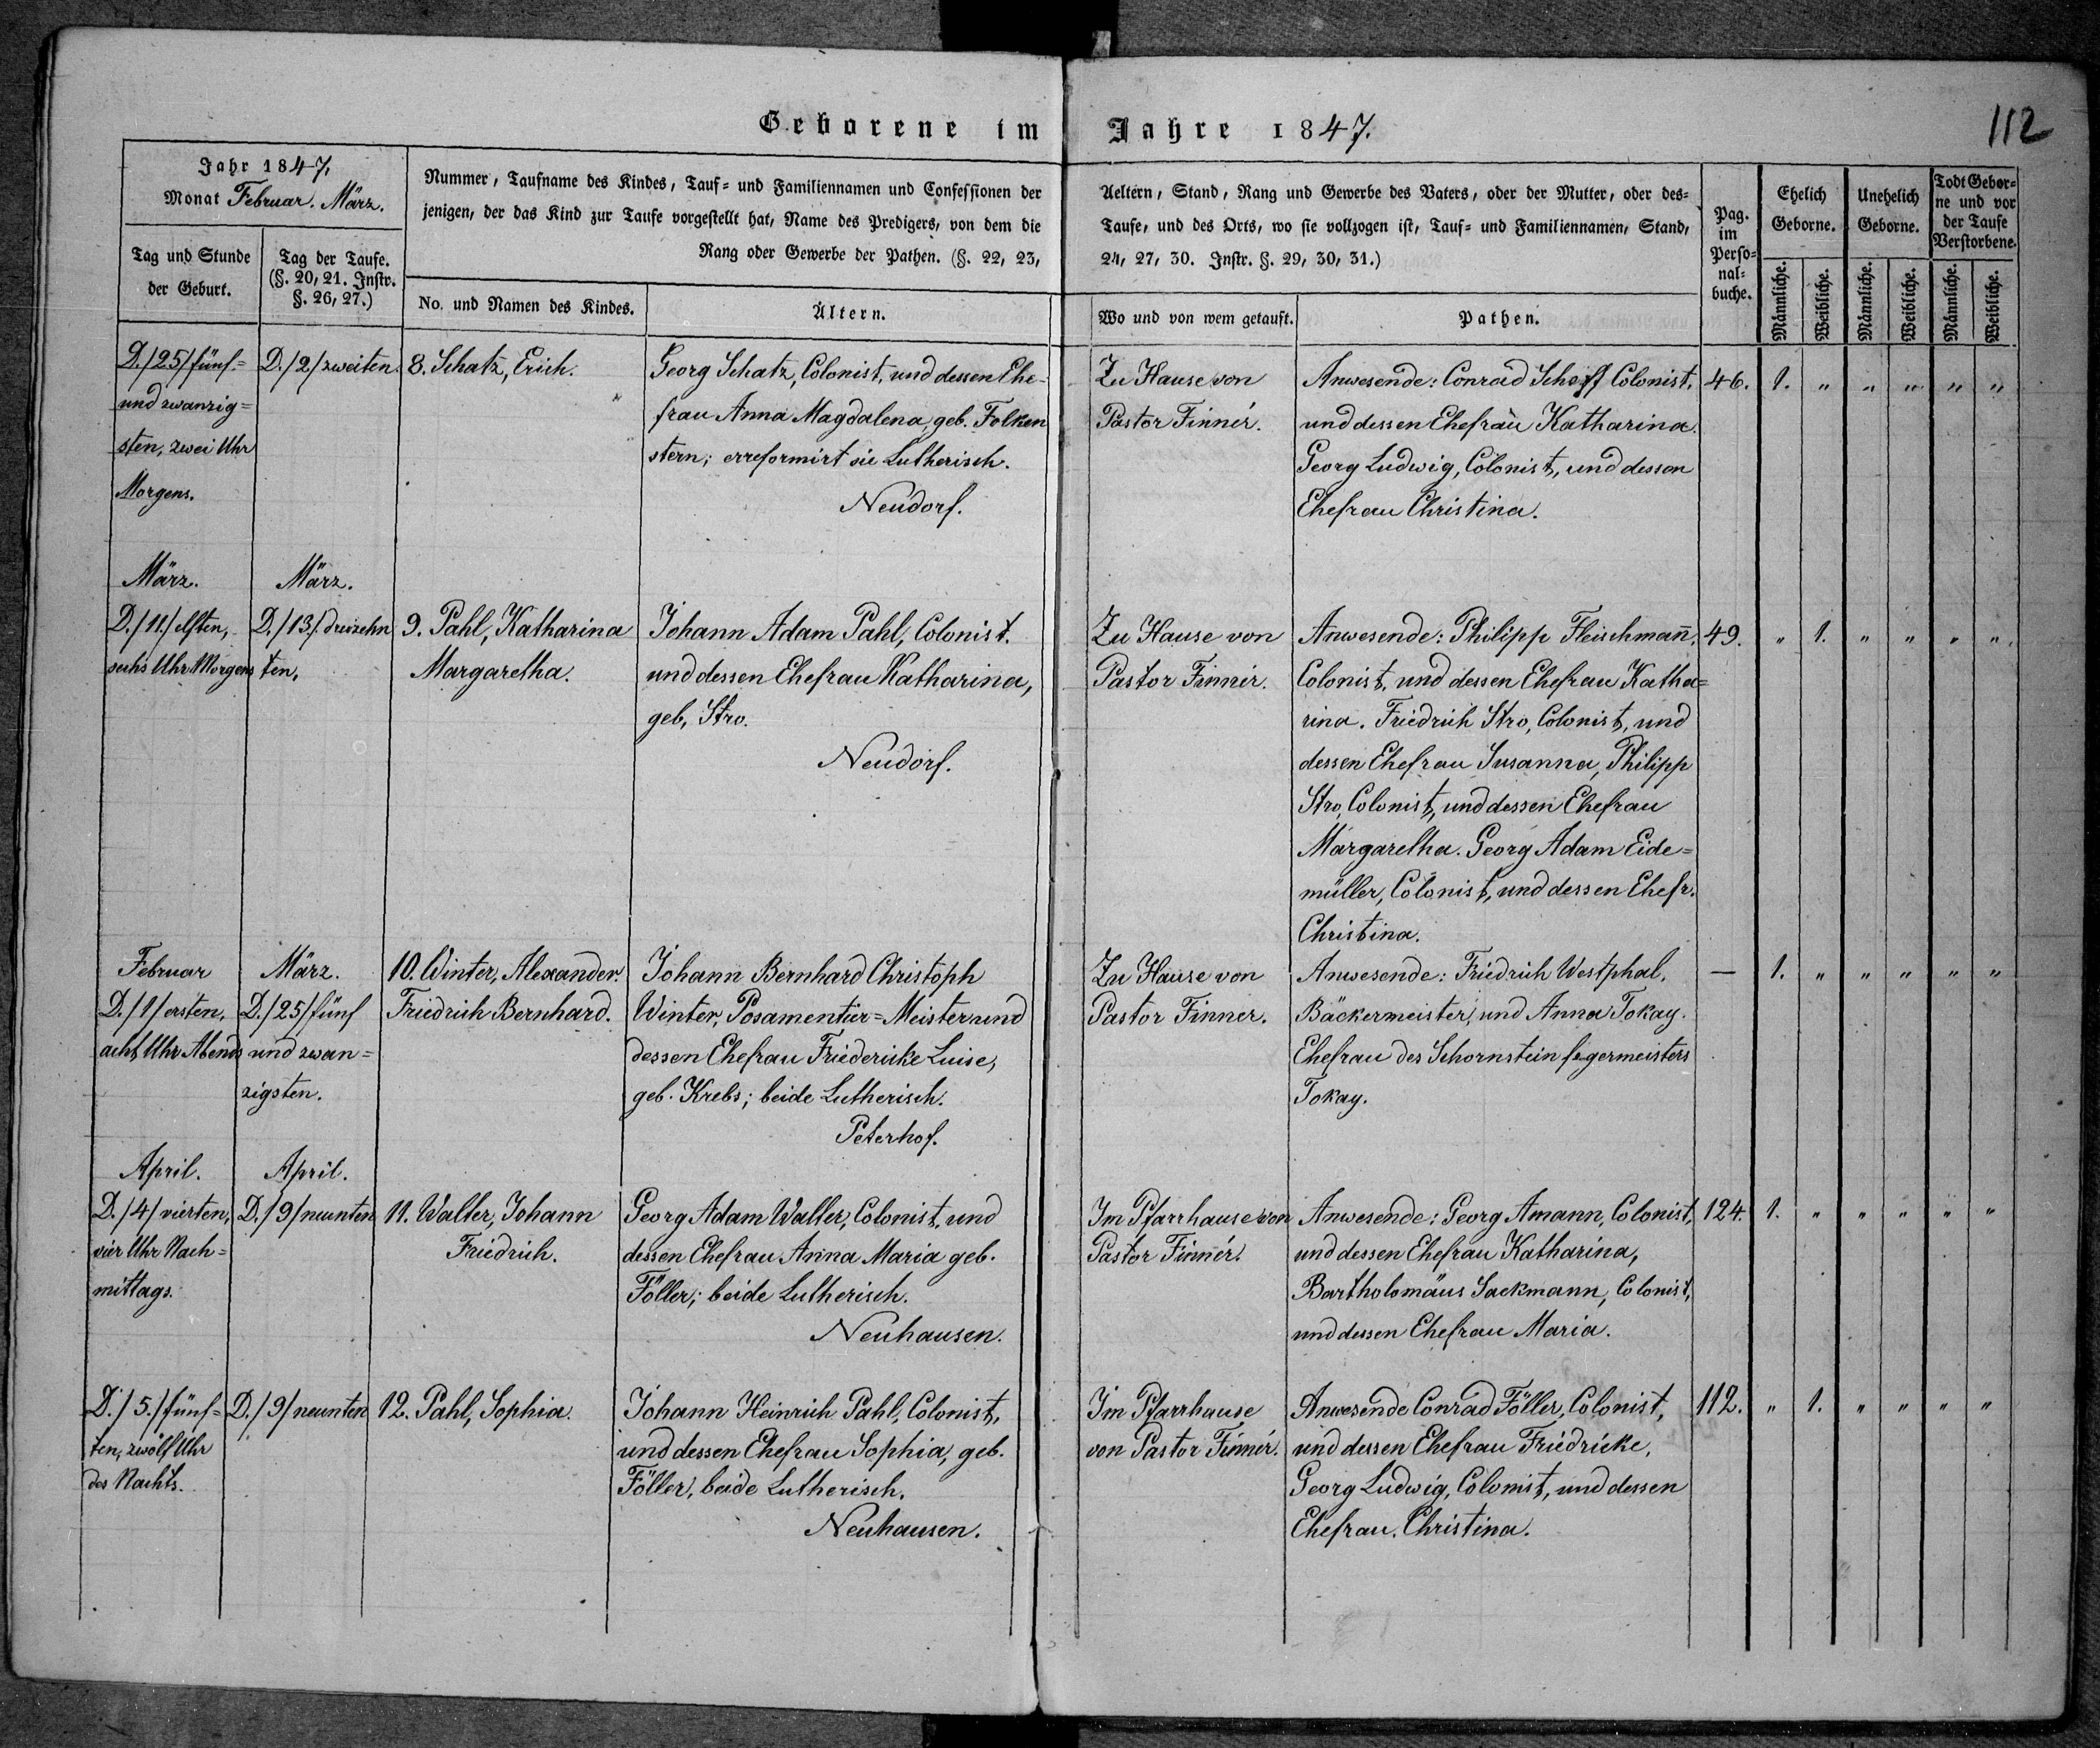 Geborene im Jahre 1847.
112
Jahr 1847.
Monat Februar. März.
Tag und Stunde
der Geburt.
Tag der Taufe.
(§. 20, 21. Instr.
§. 26, 27.)
Nummer, Taufname des Kindes, Tauf- und Familiennamen und Confessionen der
jenigen, der das Kind zur Taufe vorgestellt hat, Name des Predigers, von dem die
Rang oder Gewerbe der Pathen. (§. 22, 23,
No. und Namen des Kindes.
Ältern.
Aeltern, Stand, Rang und Gewerbe des Vaters, oder der Mutter, oder des-
Taufe, und des Orts, wo sie vollzogen ist, Tauf- und Familiennamen, Stand,
24, 27, 30. Instr. §. 29, 30, 31.)
Wo und von wem getauft.
Pathen.
Pag.
im
Perso-
nal-
buche.
Ehelich
Geborne.
Unehelich
Geborne.
Todt Gebor-
ne und vor
der Taufe
Verstorbene.
Männliche.
Weibliche.
Männliche.
Weibliche.
Männliche.
Weibliche.
D./25/fünf-
und zwanzig-
sten, zwei Uhr
Morgens.
D./2/zweiten.
8. Schatz, Erich.
Georg Schatz, Colonist, und dessen Ehe-
frau Anna Magdalena, geb. Folken
stern; er reformirt sie Lutherisch.
Neudorf.
Zu Hause von
Pastor Finnér.
Anwesende: Conrad Scheff Colonist,
und dessen Ehefrau Katharina.
Georg Ludwig, Colonist, und dessen
Ehefrau Christina.
46. 1. " " " " "
März.
D./11./elften,
sechs Uhr Morgens
März.
D./13./dreizehn
ten,
9. Pahl, Katharina
Margaretha.
Johann Adam Pahl, Colonist.
und dessen Ehefrau Katharina,
geb, Stro.
Neudorf.
Zu Hause von
Pastor Finnér.
Anwesende: Philipp Fleischmañ,
Colonist, und dessen Ehefrau Katha=
rina. Friedrich Stro, Colonist, und
dessen Ehefrau Susanna, Philipp
Stro, Colonist, und dessen Ehefrau
Margaretha. Georg Adam Eide=
müller, Colonist, und dessen Ehefr.
Christina.
49. " 1. " " " "
Februar
D./1/ersten,
acht Uhr Abends
März.
D./25/fünf
und zwan=
zigsten.
10. Winter, Alexander.
Friedrich Bernhard.
Johann Bernhard Christoph
Winter, Posamentier=Meister und
dessen Ehefrau Friedericke Luise,
geb. Krebs; beide Lutherisch.
Peterhof.
Zu Hause von
Pastor Finner.
Anwesende: Friedrich Westphal,
Bäckermeister, und Anna Tokay.
Ehefrau des Schornsteinfegermeisters
Tokay.
— 1. " " " " "
April.
D./4/vierten,
vier Uhr Nach=
mittags.
April.
D./9/neunten
11. Walter, Johann
Friedrich.
Georg Adam Walter, Colonist, und
dessen Ehefrau Anna Maria geb.
Föller; beide Lutherisch.
Neuhausen.
Im Pfarrhause von
Pastor Finnér.
Anwesende: Georg Amann, Colonist,
und dessen Ehefrau Katharina,
Bartholomäus Sackmann, Colonist,
und dessen Ehefrau Maria.
124. 1. " " " " "
D./5./fünf=
ten, zwölf Uhr
des Nachts.
D./9/neunten
12. Pahl, Sophia.
Johann Heinrich Pahl, Colonist,
und dessen Ehefrau Sophia, geb.
Föller, beide Lutherisch.
Neuhausen.
Im Pfarrhause
von Pastor Finnér.
Anwesende Conrad Föller, Colonist,
und dessen Ehefrau Friedricke,
Georg Ludwig, Colonist, und dessen
Ehefrau. Christina.
112. " 1. " " " "